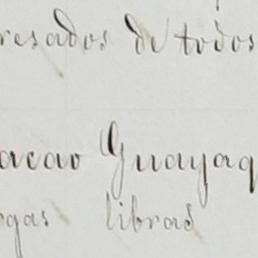 resados de todos
acao Guayaq
gas libras